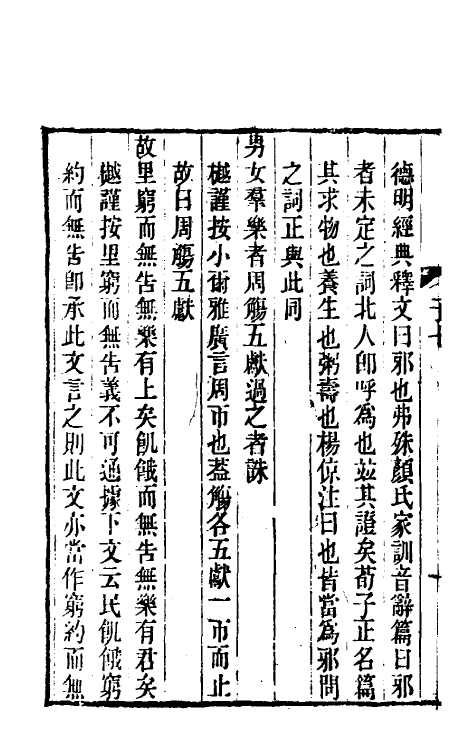 德明經典釋文曰邪也弗殊顏氏家訓音辭篇曰邪
者未定之詞北人卽呼爲也竝其證矣荀子正名篇
其求物也養生也粥壽也楊倞注曰也皆當爲邪問
之詞正與此同
男女羣樂者周觴五獻過之者誅
樾謹按小爾雅廣言周帀也蓋觴各五獻一帀而止
故曰周觴五獻
故里窮而無告無樂有上矣飢餓而無告無樂有君矣
樾謹按里窮而無告義不可通據下文云民飢餓窮
約而無告卽承此文言之則此文亦當作窮約而無